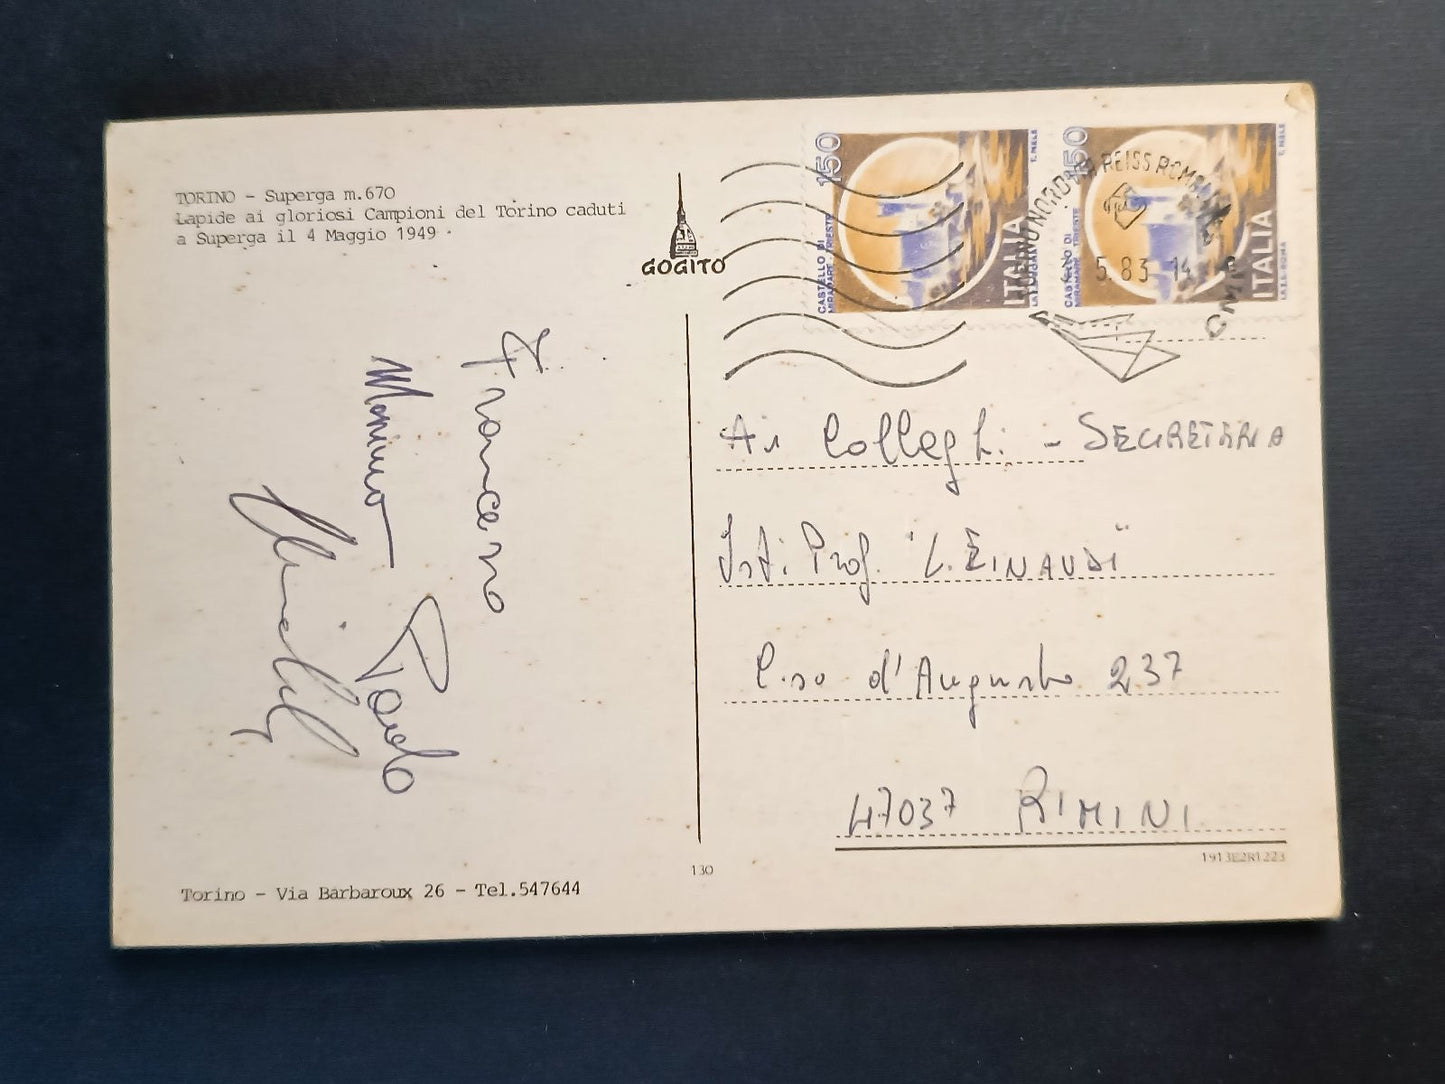 TORINO - Superga m.670
Lapide ai gloriosi Campioni del Torino caduti
a Superga il 4 Maggio 1949
GOGITO
150
CASTELLO DI
MIRAMARE TRIESTE
ITALIA
T. MELE
50
CASTELLO DI
MIRAMARE TRIESTE
ITALIA
I.P.Z.S. ROMA
T. MELE
5.83 14
Francesco
Massimo
Paolo
Ai Colleghi - SEGRETERIA
Ist. Prof. "L. EINAUDI"
C.so d'Augusto 237
47037 RIMINI
1913E2R1223
130
Torino - Via Barbaroux 26 - Tel.547644